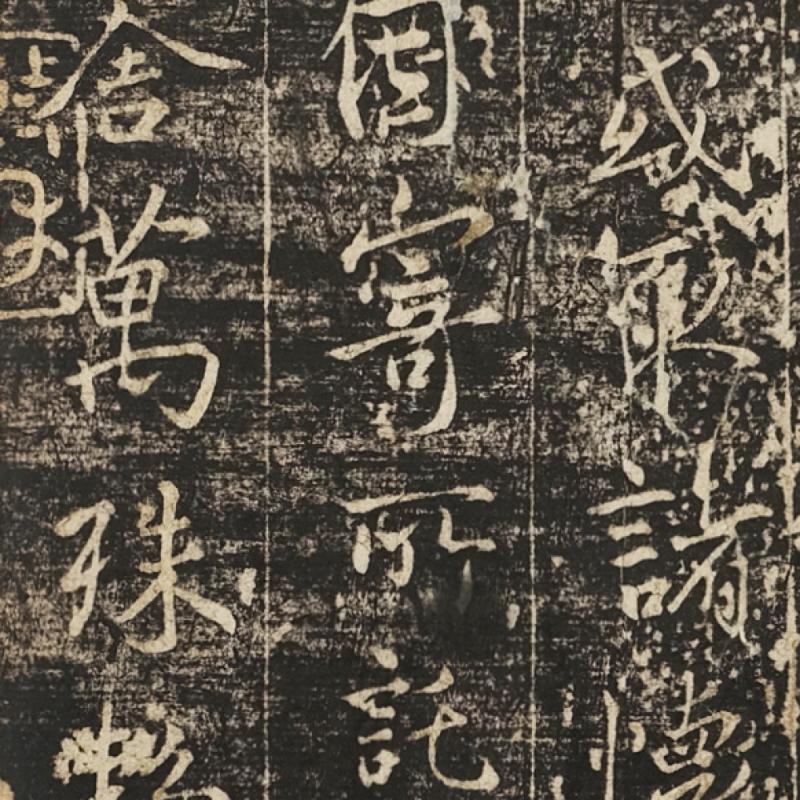 或取諸懷
因寄所託
舍萬殊靜